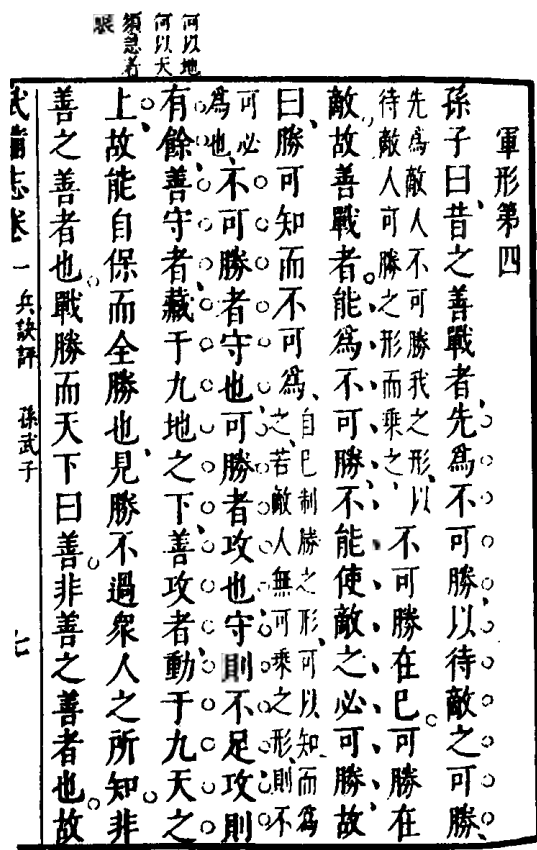 何以地
何以天
須急着
眼
軍形第四
孫子曰昔之善戰者先爲不可勝以待敵之可勝
先爲敵人不可勝我之形以
待敵人可勝之形而乘之
不可勝在巳可勝在
敵故善戰者能爲不可勝不能使敵之必可勝故
曰勝可知而不可爲
自巳制勝之形可以知而爲
之若敵人無可乘之形則不
可必
爲也
不可勝者守也可勝者攻也守則不足攻則
有餘善守者藏于九地之下善攻者動于九天之
上故能自保而全勝也見勝不過衆人之所知非
善之善者也戰勝而天下曰善非善之善者也故
武備志卷一 兵訣評 孫武子 七